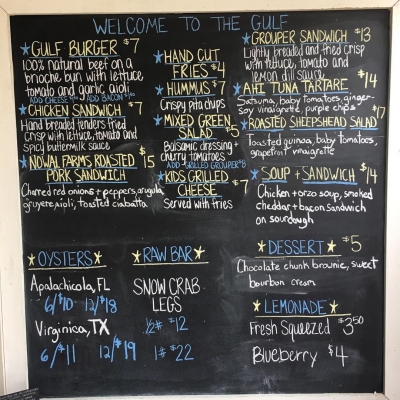 WELCOME TO THE GULF
GULF BURGER $7
100% natural beef on a
brioche bun with lettuce,
tomato and garlic aioli.
ADD BACON $1.50
CHICKEN SANDWICH $7
Hand breaded tenders fried
Crisp with lettuce, tomato and
spicy buttermilk sauce
NOWAL FARMS ROASTED $15
PORK SANDWICH
Charred red onions + peppers, arugula,
gruyere aioli, toasted ciabatta
HAND CUT
FRIES $4
HUMMUS $7
Crispy pita chips
MIXED GREEN
SALAD $5
Balsamic dressing +
cherry tomatoes
ADD GRILLED GROUPER $8
KIDS GRILLED
CHEESE $7
Served with fries
GROUPER SANDWICH $13
Lightly breaded and fried crisp
with lettuce, tomato and
lemon dill sauce
AHI TUNA TARTARE $14
Satsuma, baby tomatoes, ginger-
soy vinaigrette, purple chips
ROASTED SHEEPSHEAD SALAD $7
Toasted quinoa, baby tomatoes,
grapefruit vinaigrette
SOUP + SANDWICH $14
Chicken + orzo soup, smoked
cheddar + bacon sandwich
on sourdough
OYSTERS
Apalachicola, FL
6/$10 12/$18
Virginica, TX
6/$11 12/$19
RAW BAR
SNOW CRAB
LEGS
1/2# $12
1# $22
DESSERT $5
Chocolate chunk brownie, sweet
bourbon cream
LEMONADE
Fresh Squeezed $3.50
Blueberry $4